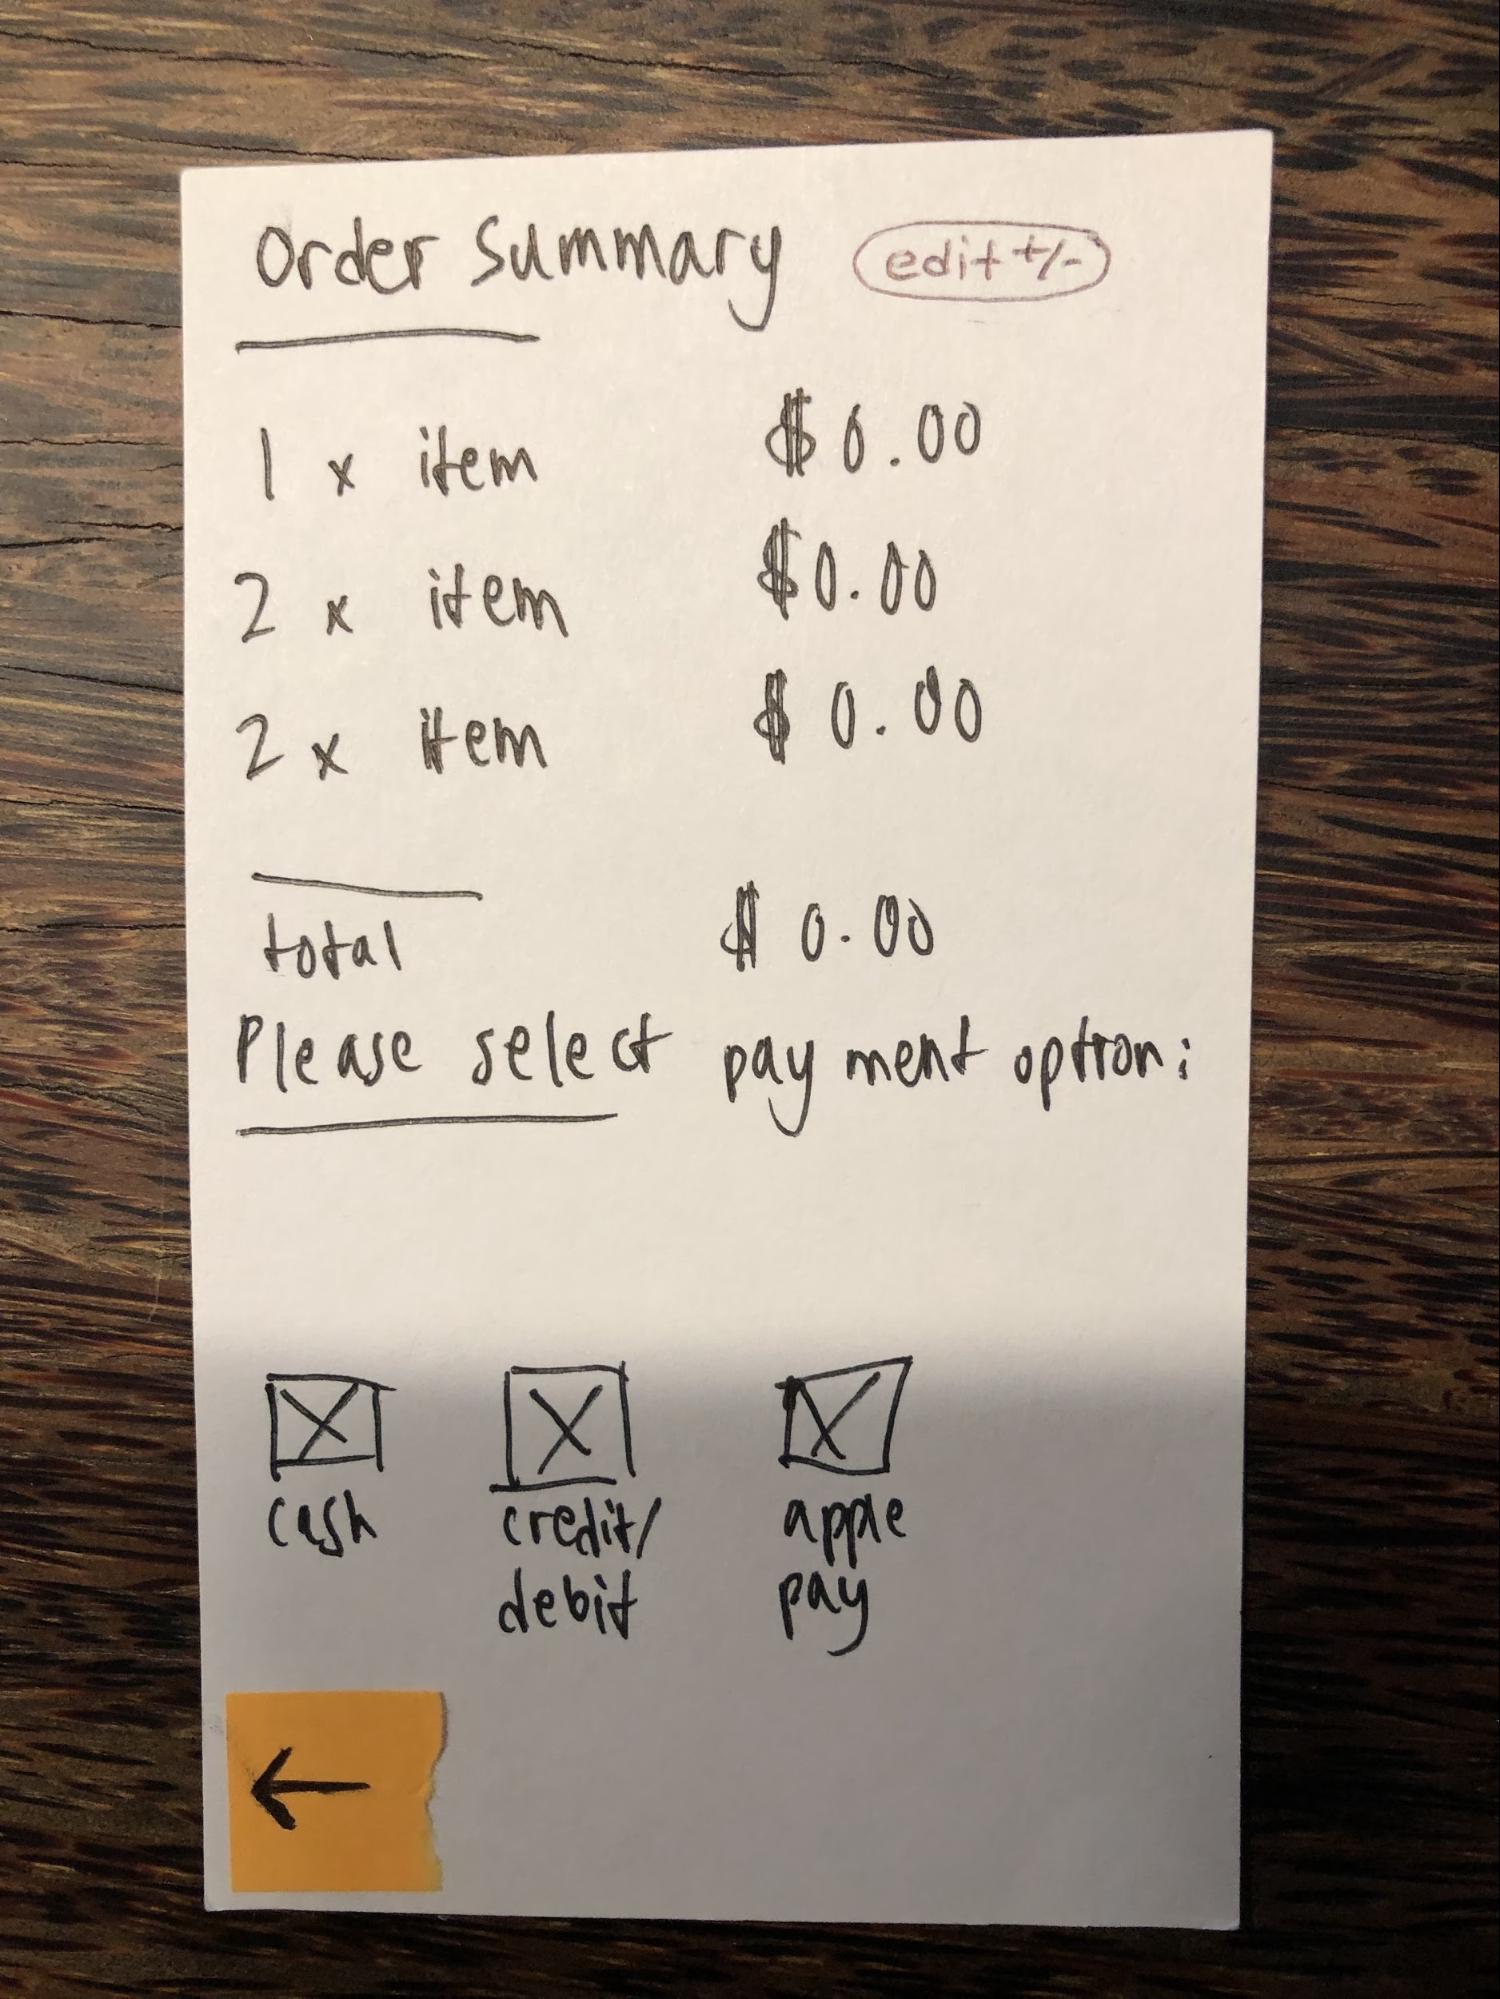 Order Summary edit +/-
1 x item $0.00
2 x item $0.00
2 x item $0.00
total $0.00
Please select payment option:
cash credit/ apple
debit pay
←